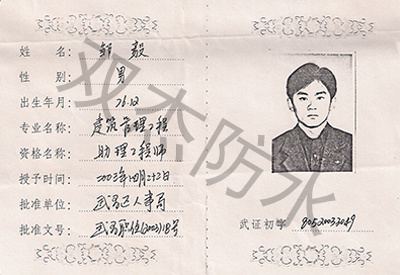 姓 名： 邹 毅
性 别： 男
出生年月： 76.12
专业名称： 建筑管理工程
资格名称： 助理工程师
授予时间： 2003年四月二十三日
批准单位： 武昌区人事局
批准文号： 武昌职位(2003)18号
武证初字 8052003049
双杰防水